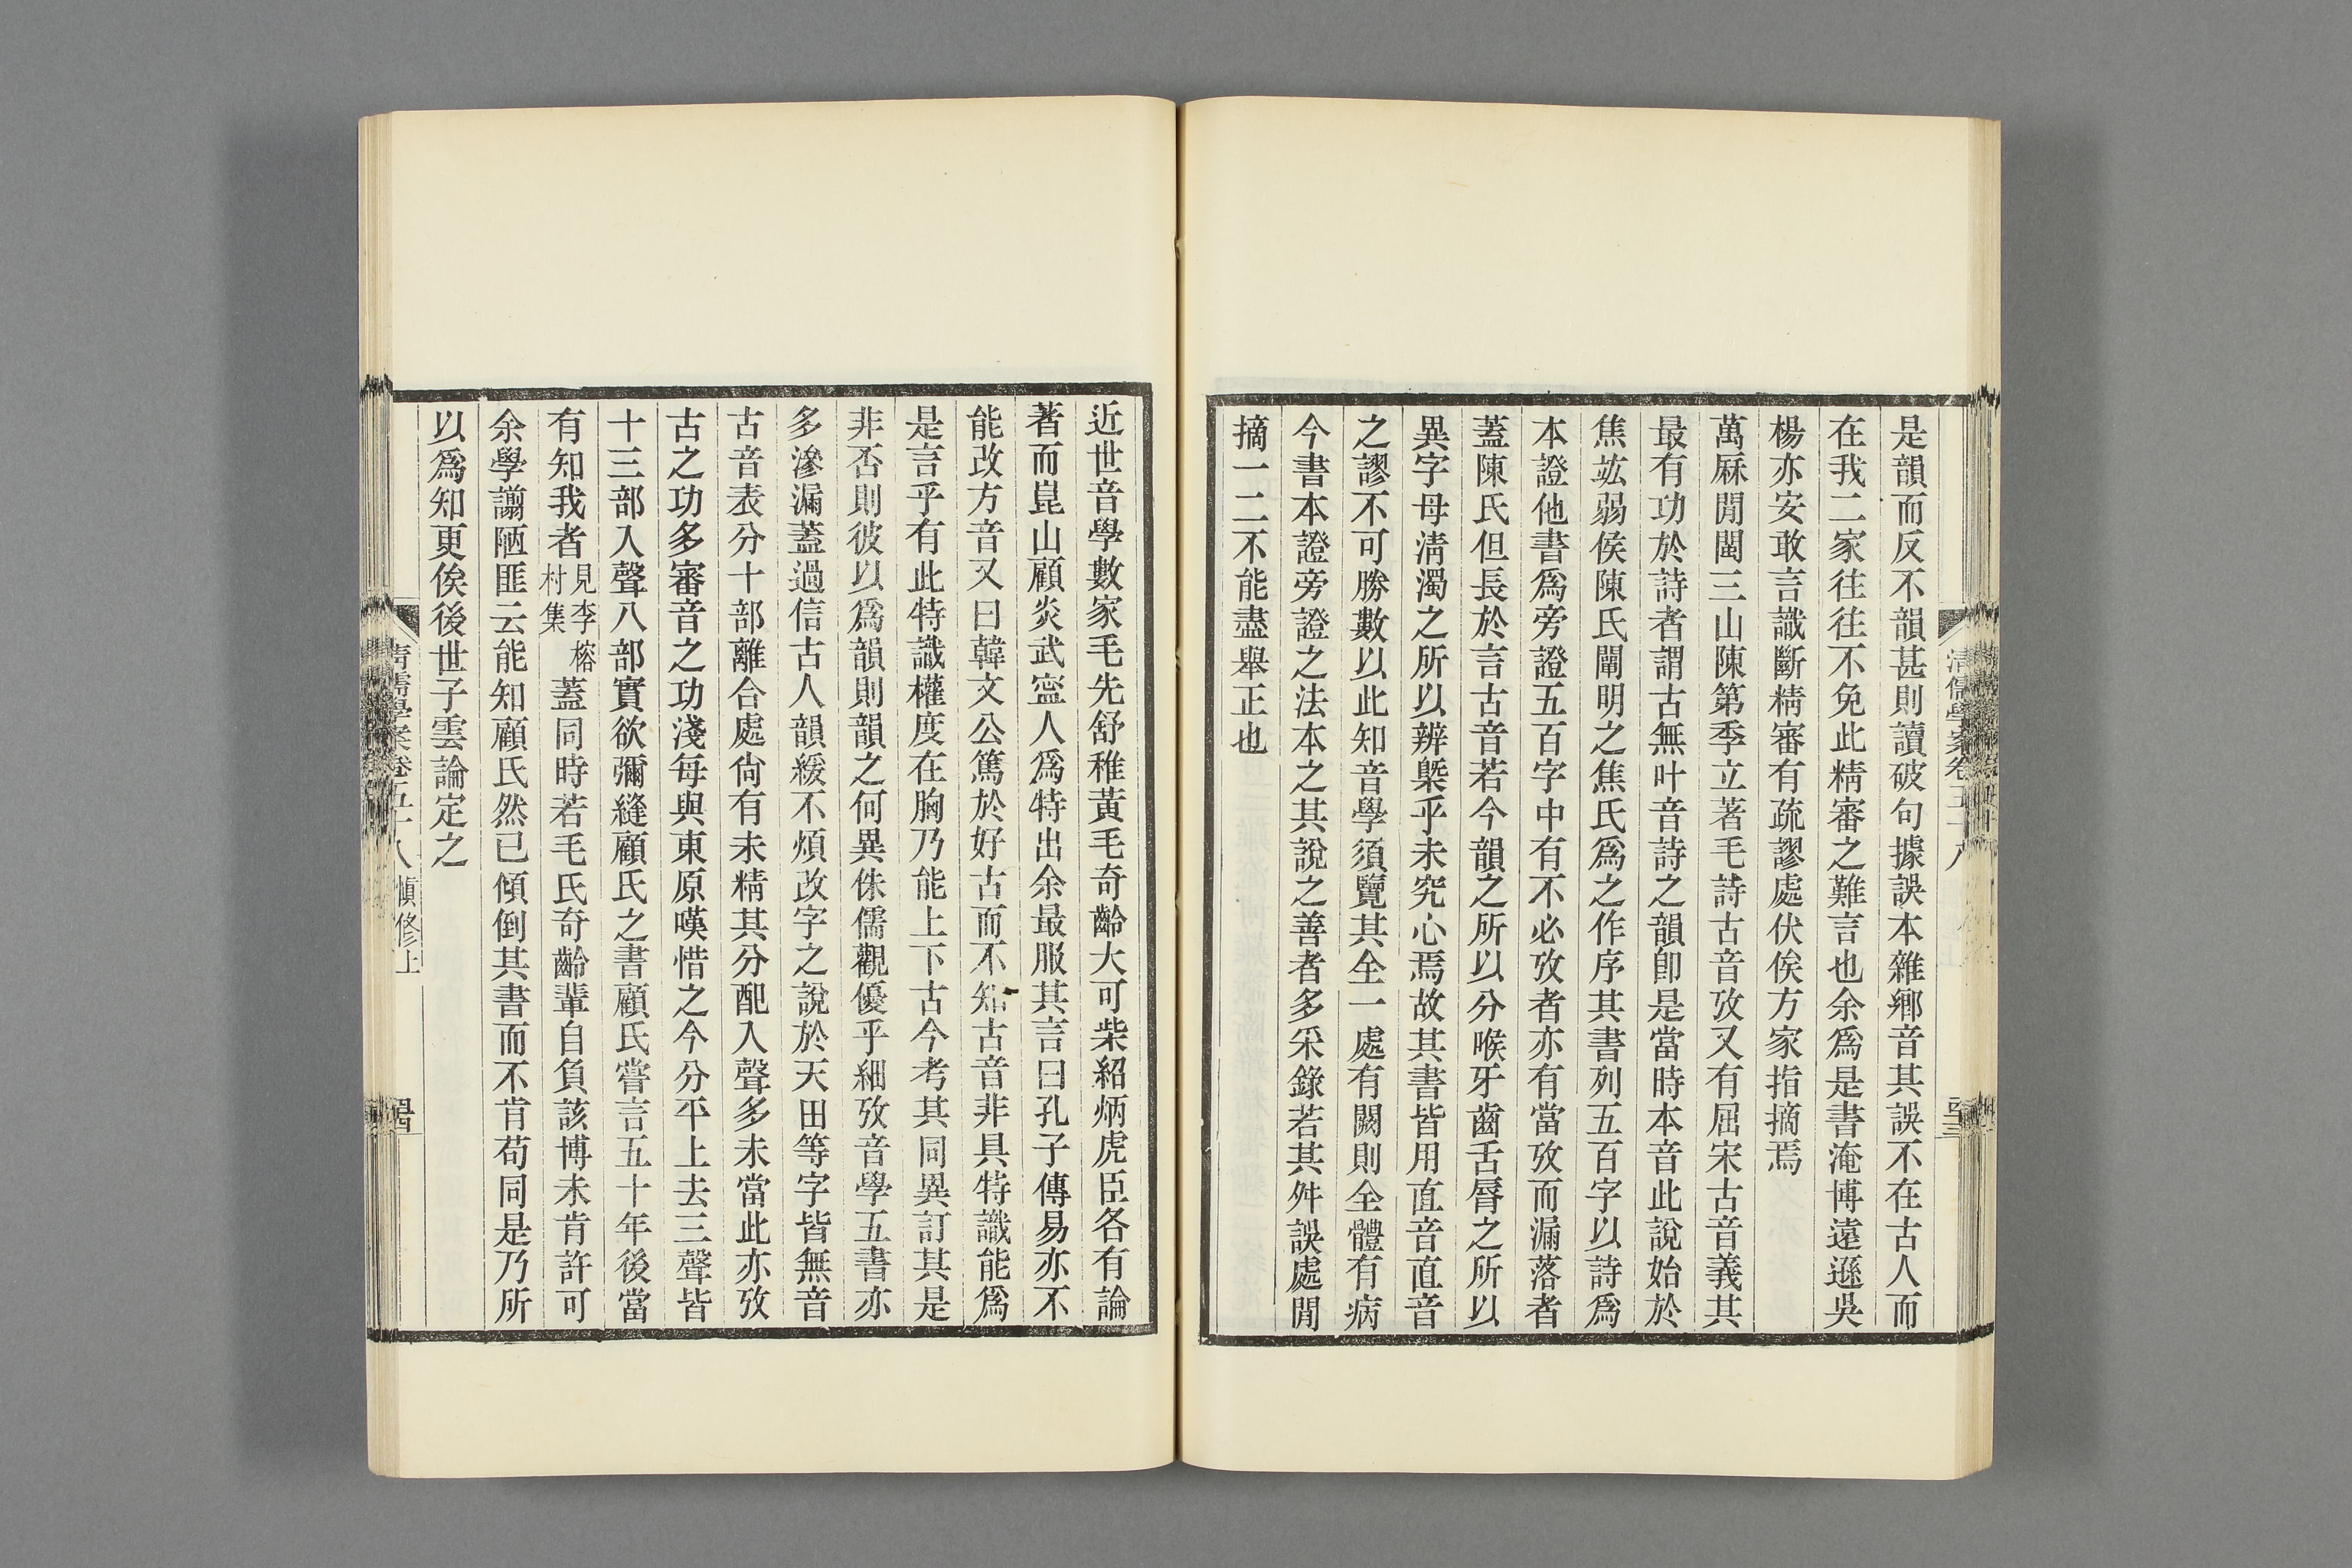 是韻而反不韻甚則讀破句據誤本雜鄉音其誤不在古人而
在我二家往往不免此精審之難言也余爲是書淹博遠遜吳
楊亦安敢言識斷精審有疏謬處伏俟方家指摘焉
萬厤閒閩三山陳第季立著毛詩古音攷又有屈宋古音義其
最有功於詩者謂古無叶音詩之韻卽是當時本音此說始於
焦竑弱侯陳氏闡明之焦氏爲之作序其書列五百字以詩爲
本證他書爲旁證五百字中有不必攷者亦有當攷而漏落者
蓋陳氏但長於言古音若今韻之所以分喉牙齒舌脣之所以
異字母淸濁之所以辨槩乎未究心焉故其書皆用直音直音
之謬不可勝數以此知音學須覽其全一處有闕則全體有病
今書本證旁證之法本之其說之善者多采錄若其舛誤處閒
摘一二不能盡舉正也
清儒學案卷五十八
近世音學數家毛先舒稚黃毛奇齡大可柴紹炳虎臣各有論
著而崑山顧炎武寍人爲特出余最服其言曰孔子傳易亦不
能改方音又曰韓文公篤於好古而不知古音非具特識能爲
是言乎有此特識權度在胸乃能上下古今考其同異訂其是
非否則彼以爲韻則韻之何異侏儒觀優乎細攷音學五書亦
多滲漏蓋過信古人韻緩不煩改字之說於天田等字皆無音
古音表分十部離合處尙有未精其分配入聲多未當此亦攷
古之功多審音之功淺每與東原嘆惜之今分平上去三聲皆
十三部入聲八部實欲彌縫顧氏之書顧氏嘗言五十年後當
有知我者見李榕村集蓋同時若毛氏奇齡輩自負該博未肯許可
余學譾陋匪云能知顧氏然已傾倒其書而不肯苟同是乃所
以爲知更俟後世子雲論定之
清儒學案卷五十八 愼修上